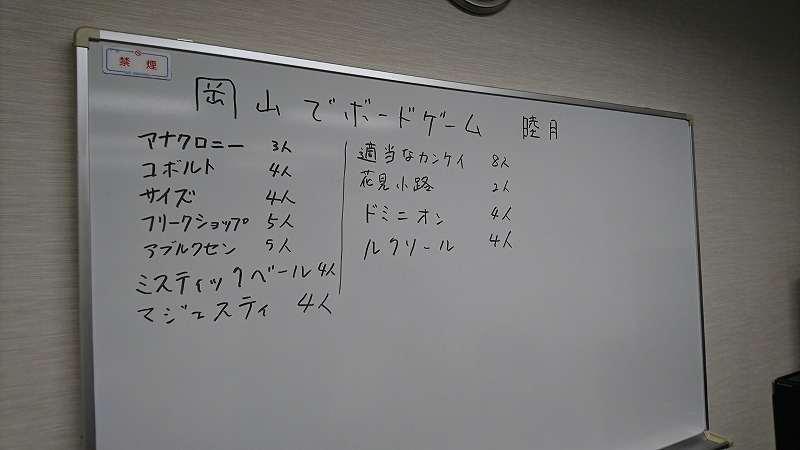 禁煙
岡山でボードゲーム 睦月
アナクロニー 3人
コボルト 4人
サイズ 4人
フリークショップ 5人
アブルクセン 5人
ミスティックベール 4人
マジェスティ 4人
適当なカンケイ 8人
花見小路 2人
ドミニオン 4人
ルクソール 4人